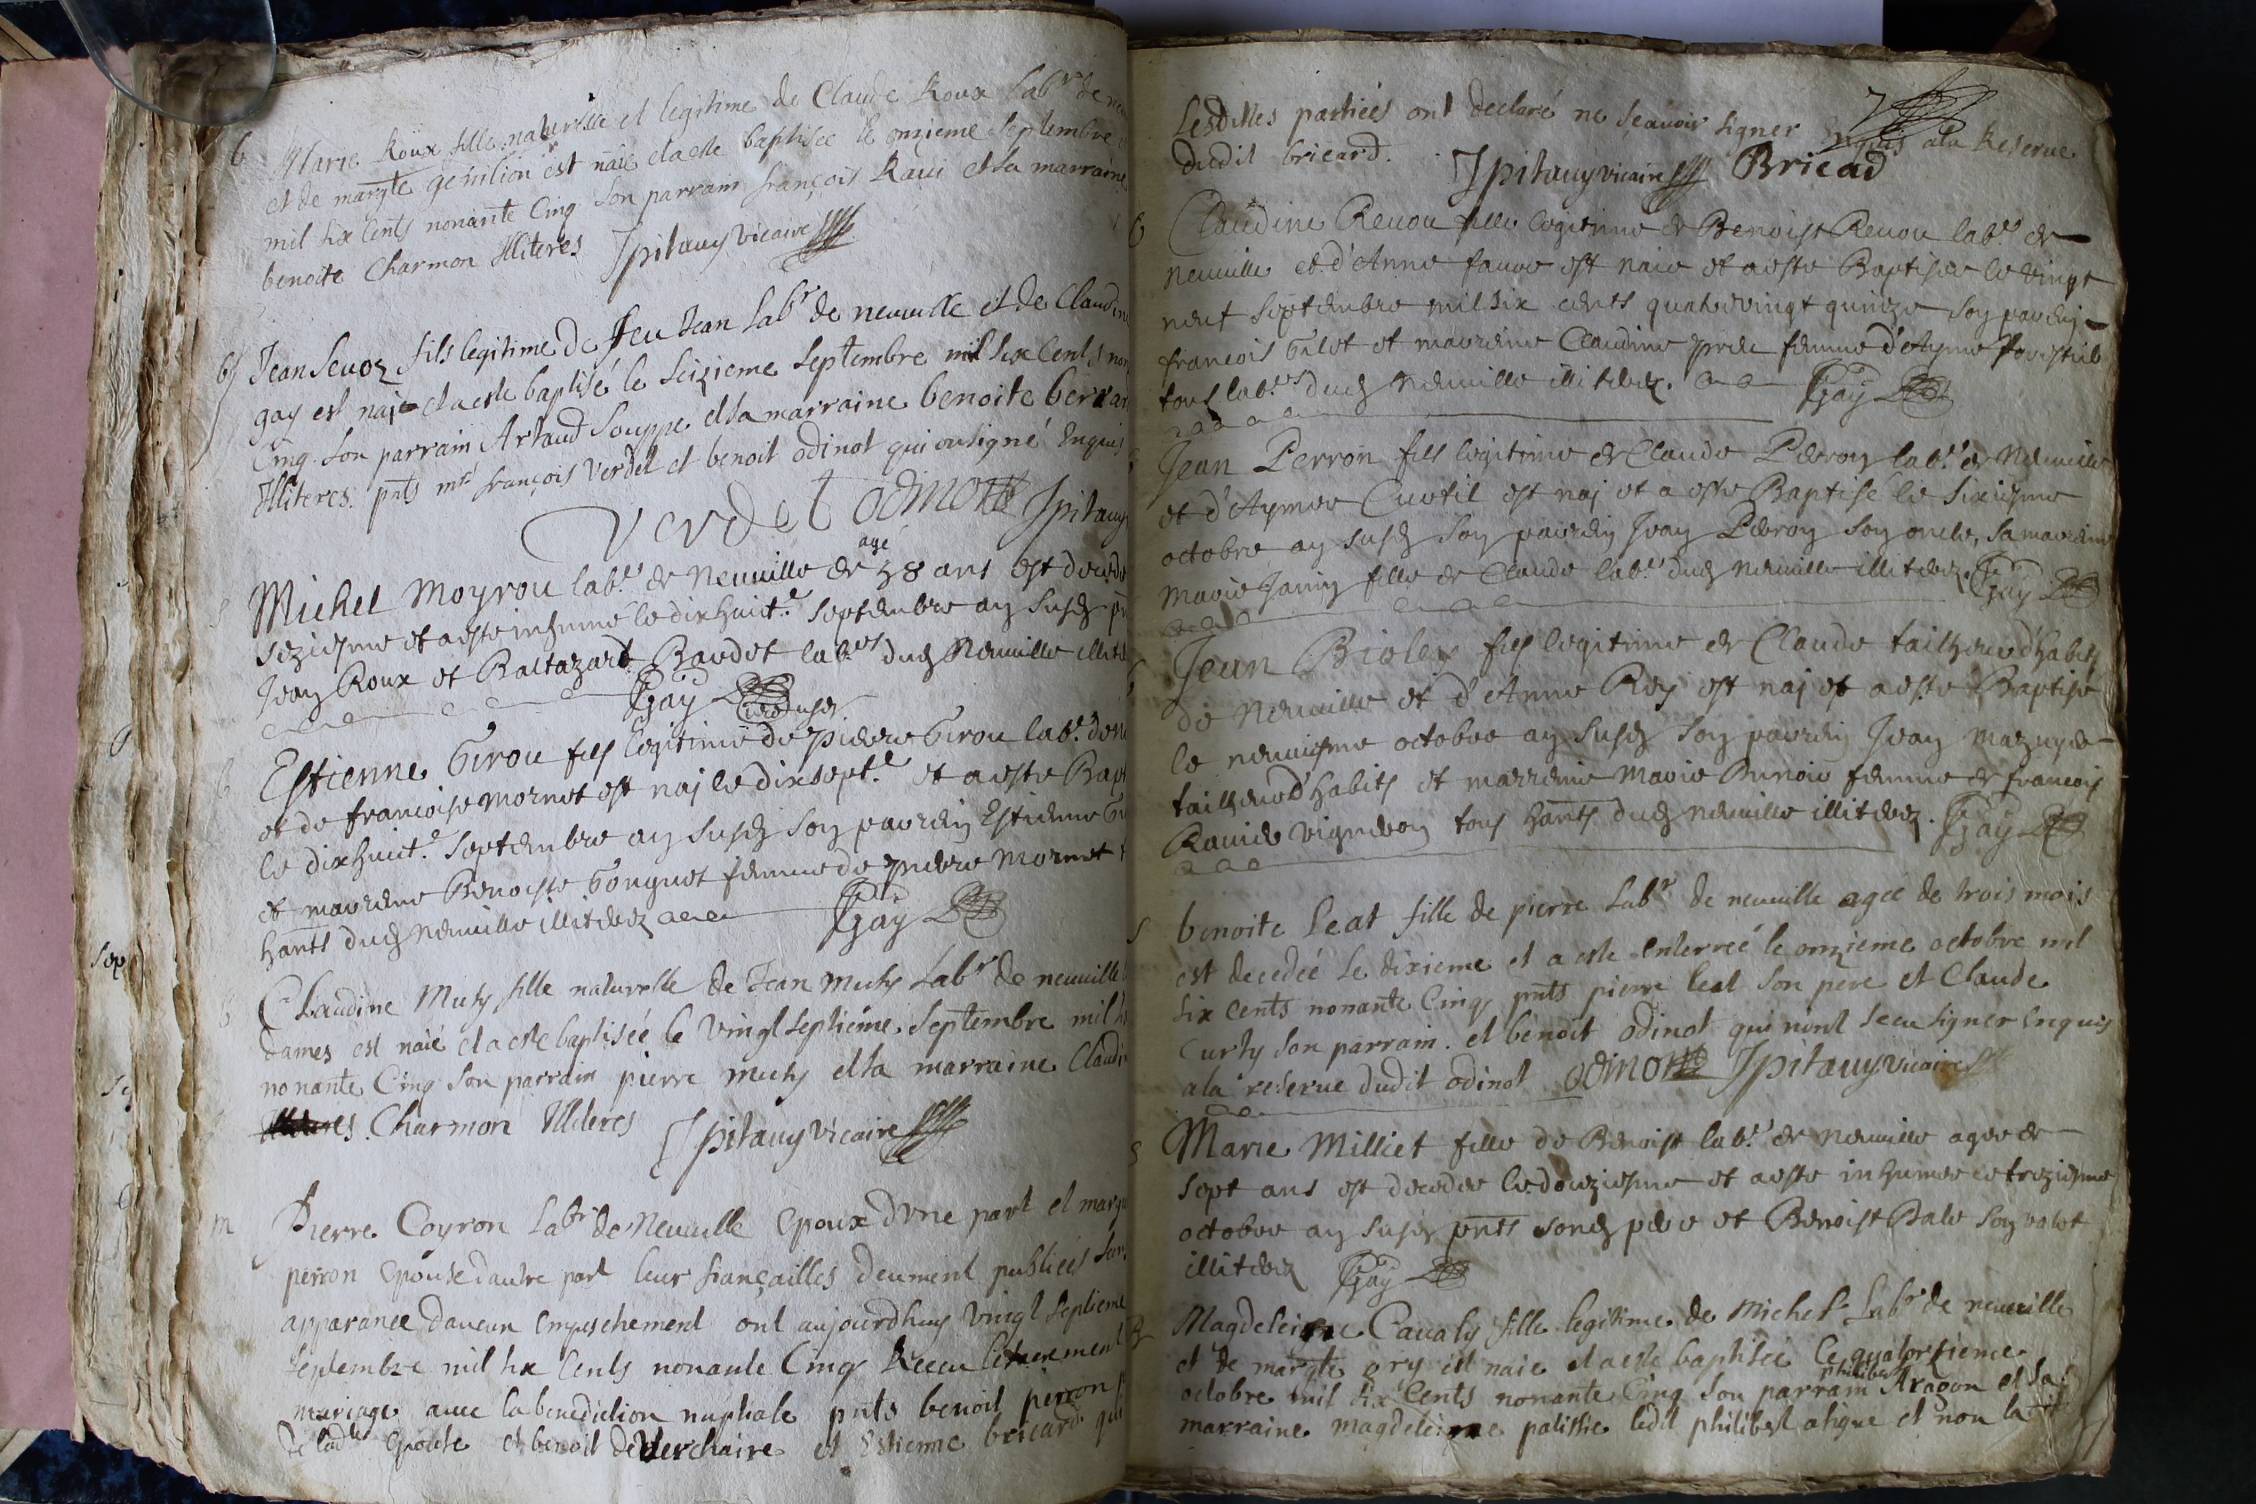 b
Marie Roux fille naturelle et legitime de Claude Roux Labr de
et de margte genilion est naie et a este baptisée le onzieme septembre
mil six Cents nonante Cinq son parrain françois Raui et sa marraine
benoite Charmon Illiteres Jpitauy vicaire
b
Jean Seuoz fils legitime de feu Jean Labr de neuuille et de Claudine
gay est naie et a este baptisé le Seizieme Septembre mil Six Cents
Cinq Son parrain Artaud Souppe et sa marraine benoite
Illiteres. pnts mre françois Verdet et benoit odinot qui ont signé Enquis
Verdet odinot Jpitauy
s
Michel Moyrou labr de Neuuille de agé 38 ans est decedé
seziesme et a esté inhumé le dixhuicte septembre an susd
Jean Roux et Baltazard Baudet labrs dud Neuuille
Gay
b
Estienne Girou fils legitime de pierre Girou labr
et de francoise mornet est naj le dixsepte et a este
le dixhuicte septembre an susd son parrein Estienne
et marreine Benoiste Gouguet femme de pierre Mornet
hants dud Neuuille illiterez Gay
b
Claudine Muty fille naturelle de Jean muty Labr de neuuille
dames est naié et a este baptisée le vingt septiéme Septembre mil
nonante Cinq Son parrain pierre muty et sa marraine
Charmon Illiteres Jpitauy vicaire
m
Pierre Coyron Labr de Neuuille Epoux d'vne part et
perron Epouse d'autre part leur fiançailles deument publiées
apparance d'aucun Empeschement ont aujourdhuy vingt Septieme
Septembre mil six Cents nonante Cinq Receu
mariage auec la benediction nuptiale pnts benoit perron
de ladte epouse et benoit de Verchaire et Estienne bricard
Lesdittes partiées ont declaré ne Scauoir Signer Enquis a la Reserue
dudit bricard. Jpitauy vicaire Bricad
b
Claudine Reuou fille legitime de Benoist Reuou labr de
Neuuille et d'Anne faure est naie et a este Baptisée le vingt
neuf septembre mil six cents quatrevingt quinze son parrein
francois Gilet et marreine Claudine femme d'Ayme
tous labrs dud Neuuille illiterez. Gay
Jean Perron fils legitime de Claude Perron labr de Neuuille
et d'Aymee Curtil est naj et a este Baptisé le sixiesme
octobre an susd son parrein Jean Perron son oncle, sa marreine
Marie Janin fille de Claude labr dud Neuuille illiterez. Gay
Jean Bioley fils legitime de Claude tailheur d'habits
de Neuuille et d'Anne Rey est naj et a este Baptisé
le neuuiesme octobre an susd son parrein Jean Mazuyer
tailheur d'habits et marreine Marie Benoiu femme de francois
Rauier vigneron tous hants dud neuuille illiterez. Gay
s
benoite Leat fille de pierre Labr de neuuille agée de trois mois
est decedée Le dixieme et a este Enterreé le onzieme octobre mil
Six Cents nonante Cinq pnts pierre leat Son pere et Claude
Curty Son parrain. et benoit odinot qui n'ont Sceu Signer Enquis
a la reserue dudit odinot odinot Jpitauy vicaire
s
Marie Milliet fille de Benoist labr de Neuuille agee de
sept ans est decedee le douziesme et a este inhumee le treziesme
octobre an susd pnts sond pere et Benoist Bale son valet
illiterez Gay
B
Magdeleine Cavaly fille legitime de michel Labr de neuuille
et de margte est naie et a este baptisée le quatorzieme
octobre mil six Cents nonante Cinq Son parrain philibert Aragon et sa
marraine magdeleine palisse ledit philibert a signe et non la